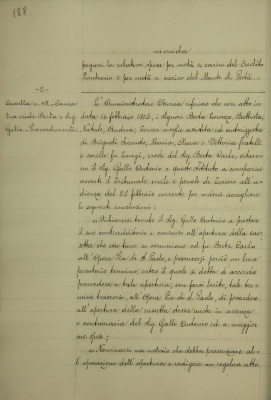 188
manda
pagare la relativa spesa per metà a carico del Credito
Fondiario e per metà a carico del Monte di Pietà.
- 8 -
Casella n. 58. Causa
tra sorelle Berta e Sig.
Gallo. Provvedimenti.
L'Amministratore riferisce che con atto in
data 16 febbraio 1903, i Signori Berta Lorenzo, Battista,
Natale, Andrea, Teresa moglie assistita ed autorizzata
di Brigada Secondo, Maria, e Vittoria fratelli
e sorelle fu Luigi, eredi del Sig. Berta Carlo, citarono
il Sig. Gallo Antonio e questo Istituto a comparire
avanti il Tribunale civile e penale di Torino all'udienza
del 23 febbraio corrente per vedersi accogliere
le seguenti conclusioni:
" Dichiararsi tenuto il Sig. Gallo Antonio a prestare
il suo contraddittorio e consenso all'apertura della cassetta
che esso tiene in comunione col fu Berta Carlo
all'Opera Pia di S. Paolo, e prefiggersi perciò un breve
perentorio termine entro il quale si debba di accordo
procedere a tale apertura, con farsi lecito, tale termine
trascorso, all'Opera Pia di S. Paolo, di procedere
all'apertura della cassetta stessa anche in assenza
e contumacia del Sig. Gallo Antonio ed a maggiori
sue spese;
" Nominarsi un notaio che debba presenziare all'operazione
dell'apertura e redigere un regolare atto